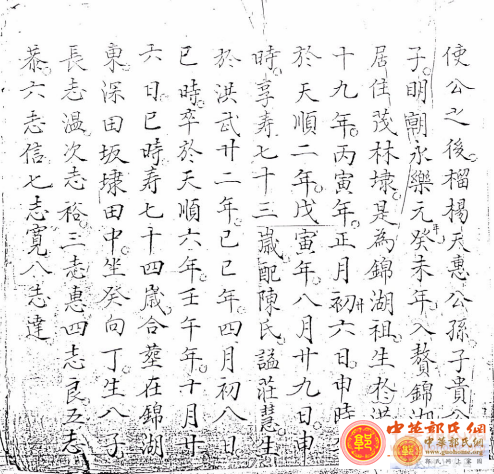 使公之後榴楊天惠公孫子貴公
子明朝永樂元年癸未年入贅錦湖
居住茂林埭是為錦湖祖生於洪
十九年丙寅年正月初六日申時
於天順二年戊寅年八月廿九日申
時享寿七十三嵗配陳氏謚莊慧生
於洪武廿二年己巳年四月初八日
巳時卒於天順六年壬午年十月廿
六日巳時寿七十四嵗合塟在錦湖
東深田坂埭田中坐癸向丁生八子
長志温次志裕三志惠四志良五志
恭六志信七志寬八志達
中華郭氏網
中華郭氏網